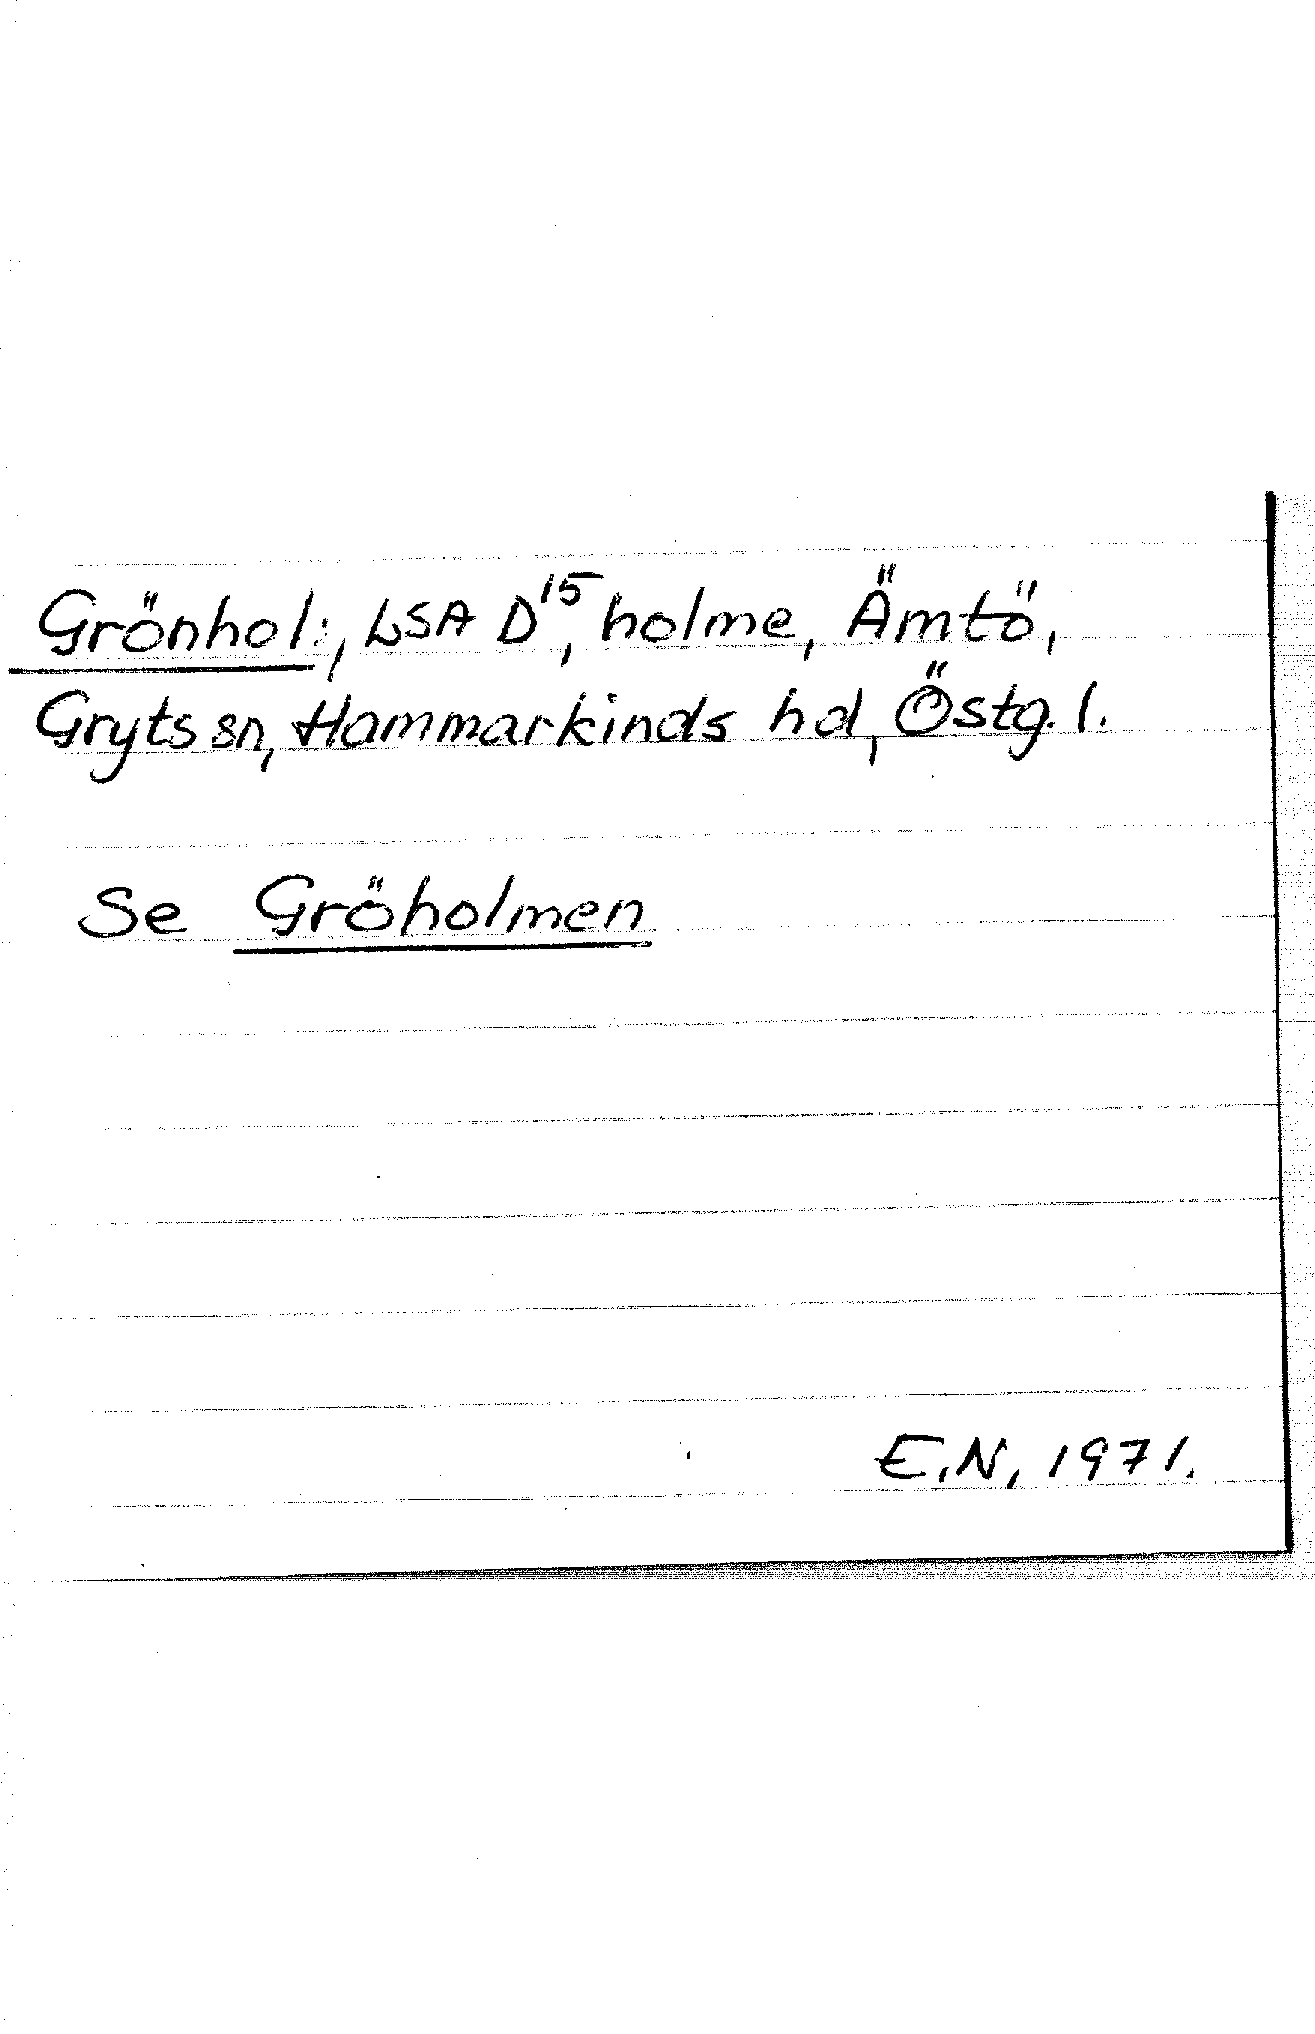 Grönhol:, LSA D15, holme, Ämtö,
Gryts sn, Hammarkinds hd, Östg. l.
Se Gröholmen
E.N, 1971.